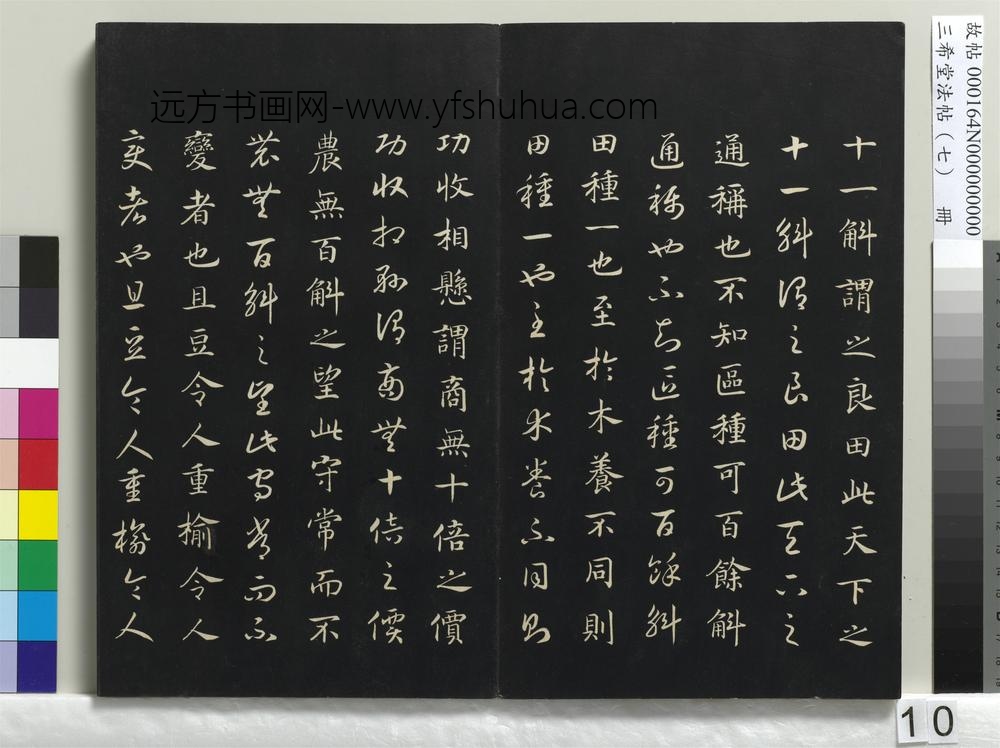 十一斛謂之良田此天下之
十一斛謂之良田此天下之
通稱也不知區種可百餘斛
通稱也不知區種可百餘斛
田種一也至於木養不同則
田種一也至於水養不同則
功收相懸謂商無十倍之價
功收相懸謂商無十倍之價
農無百斛之望此守常而不
農無百斛之望此守常而不
變者也且豆令人重榆令人
變者也且豆令人重榆令人
远方书画网-www.yfshuhua.com
故帖 000164N000000000
三希堂法帖（七） 冊
10